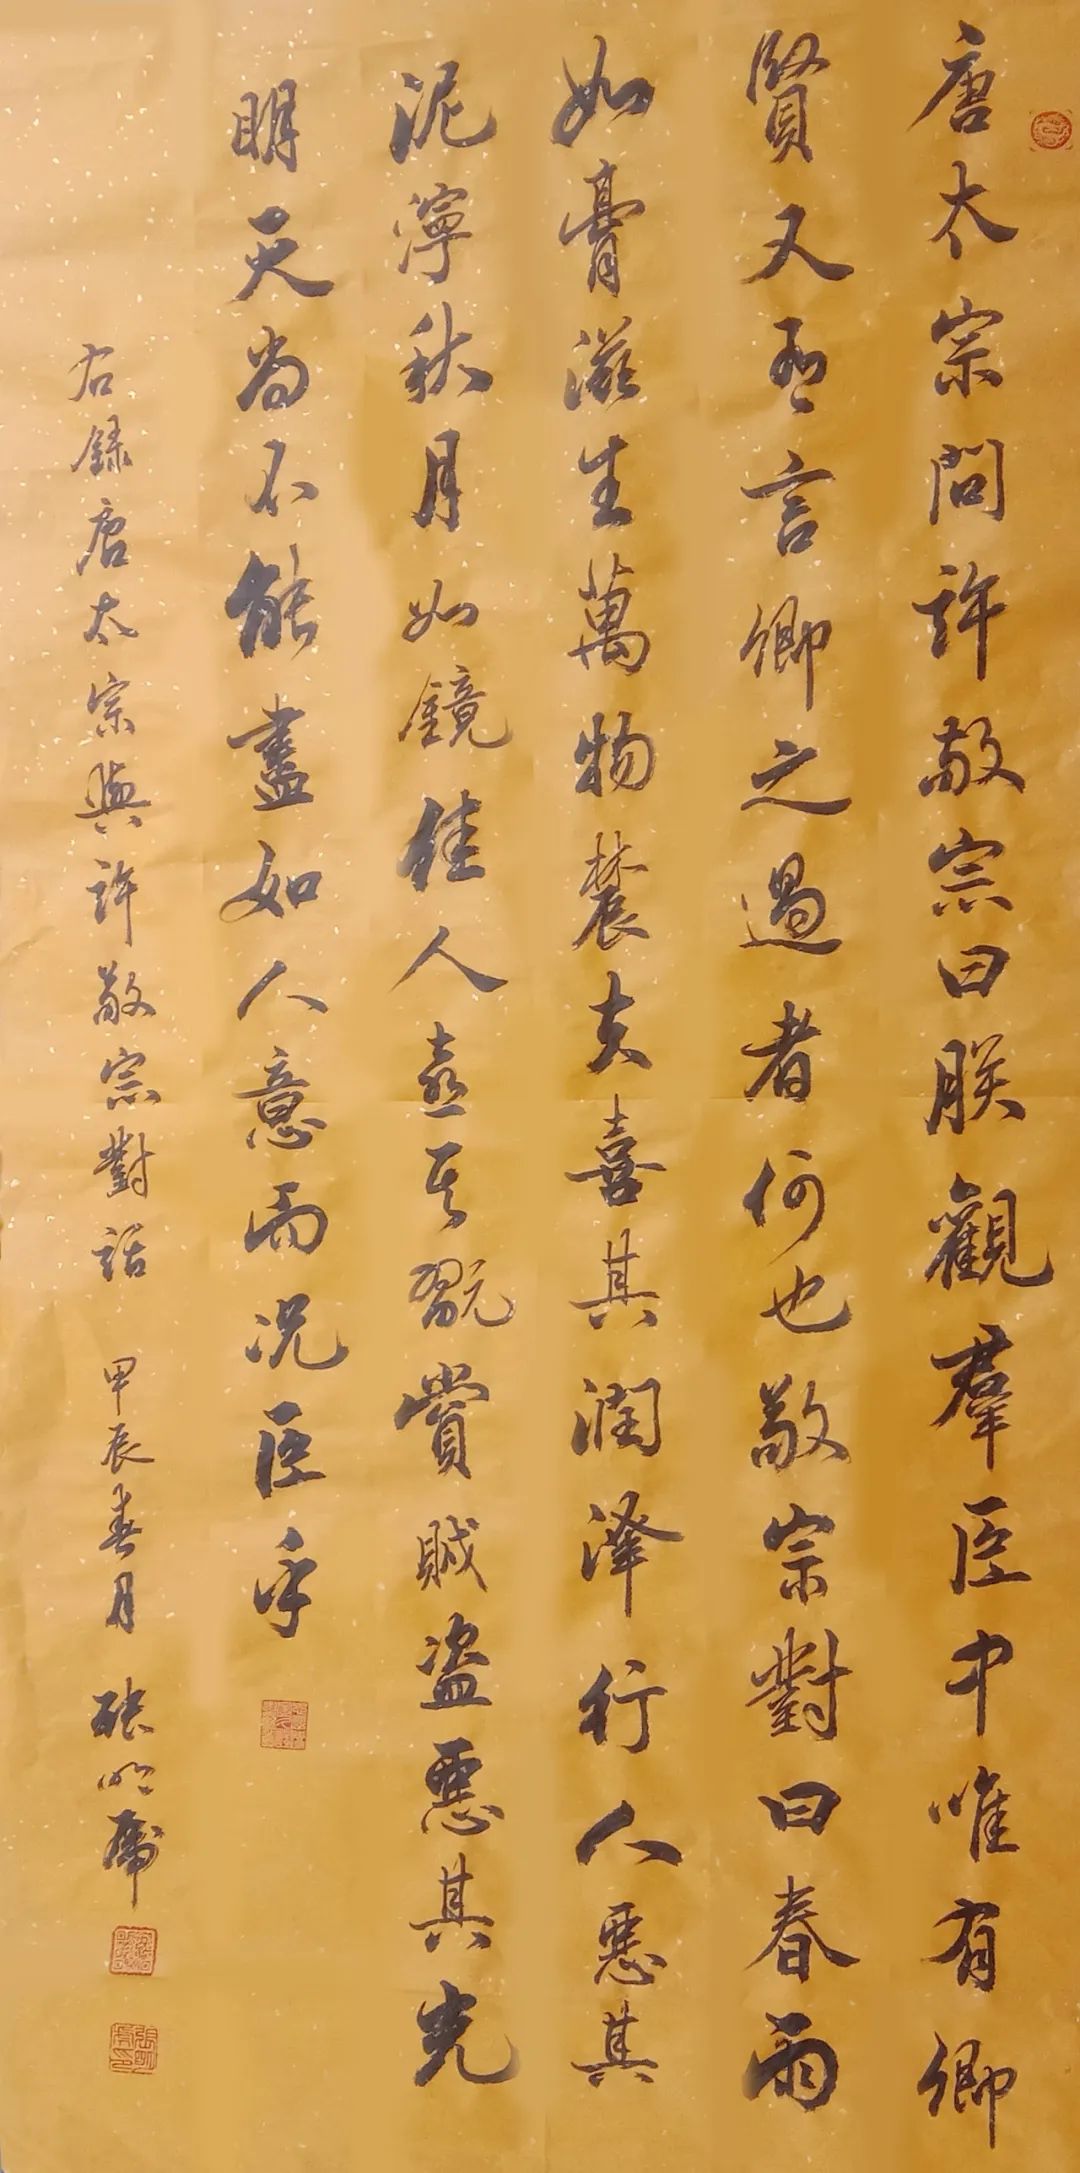 唐太宗問許敬宗曰朕觀群臣中唯有卿
賢又有言卿之過者何也敬宗對曰春雨
如膏滋生萬物農夫喜其潤澤行人惡其
泥濘秋月如鏡佳人喜其翫賞賊盜惡其光
明天尚不能盡如人意而況臣乎
右錄唐太宗與許敬宗對話 甲辰春月 張明